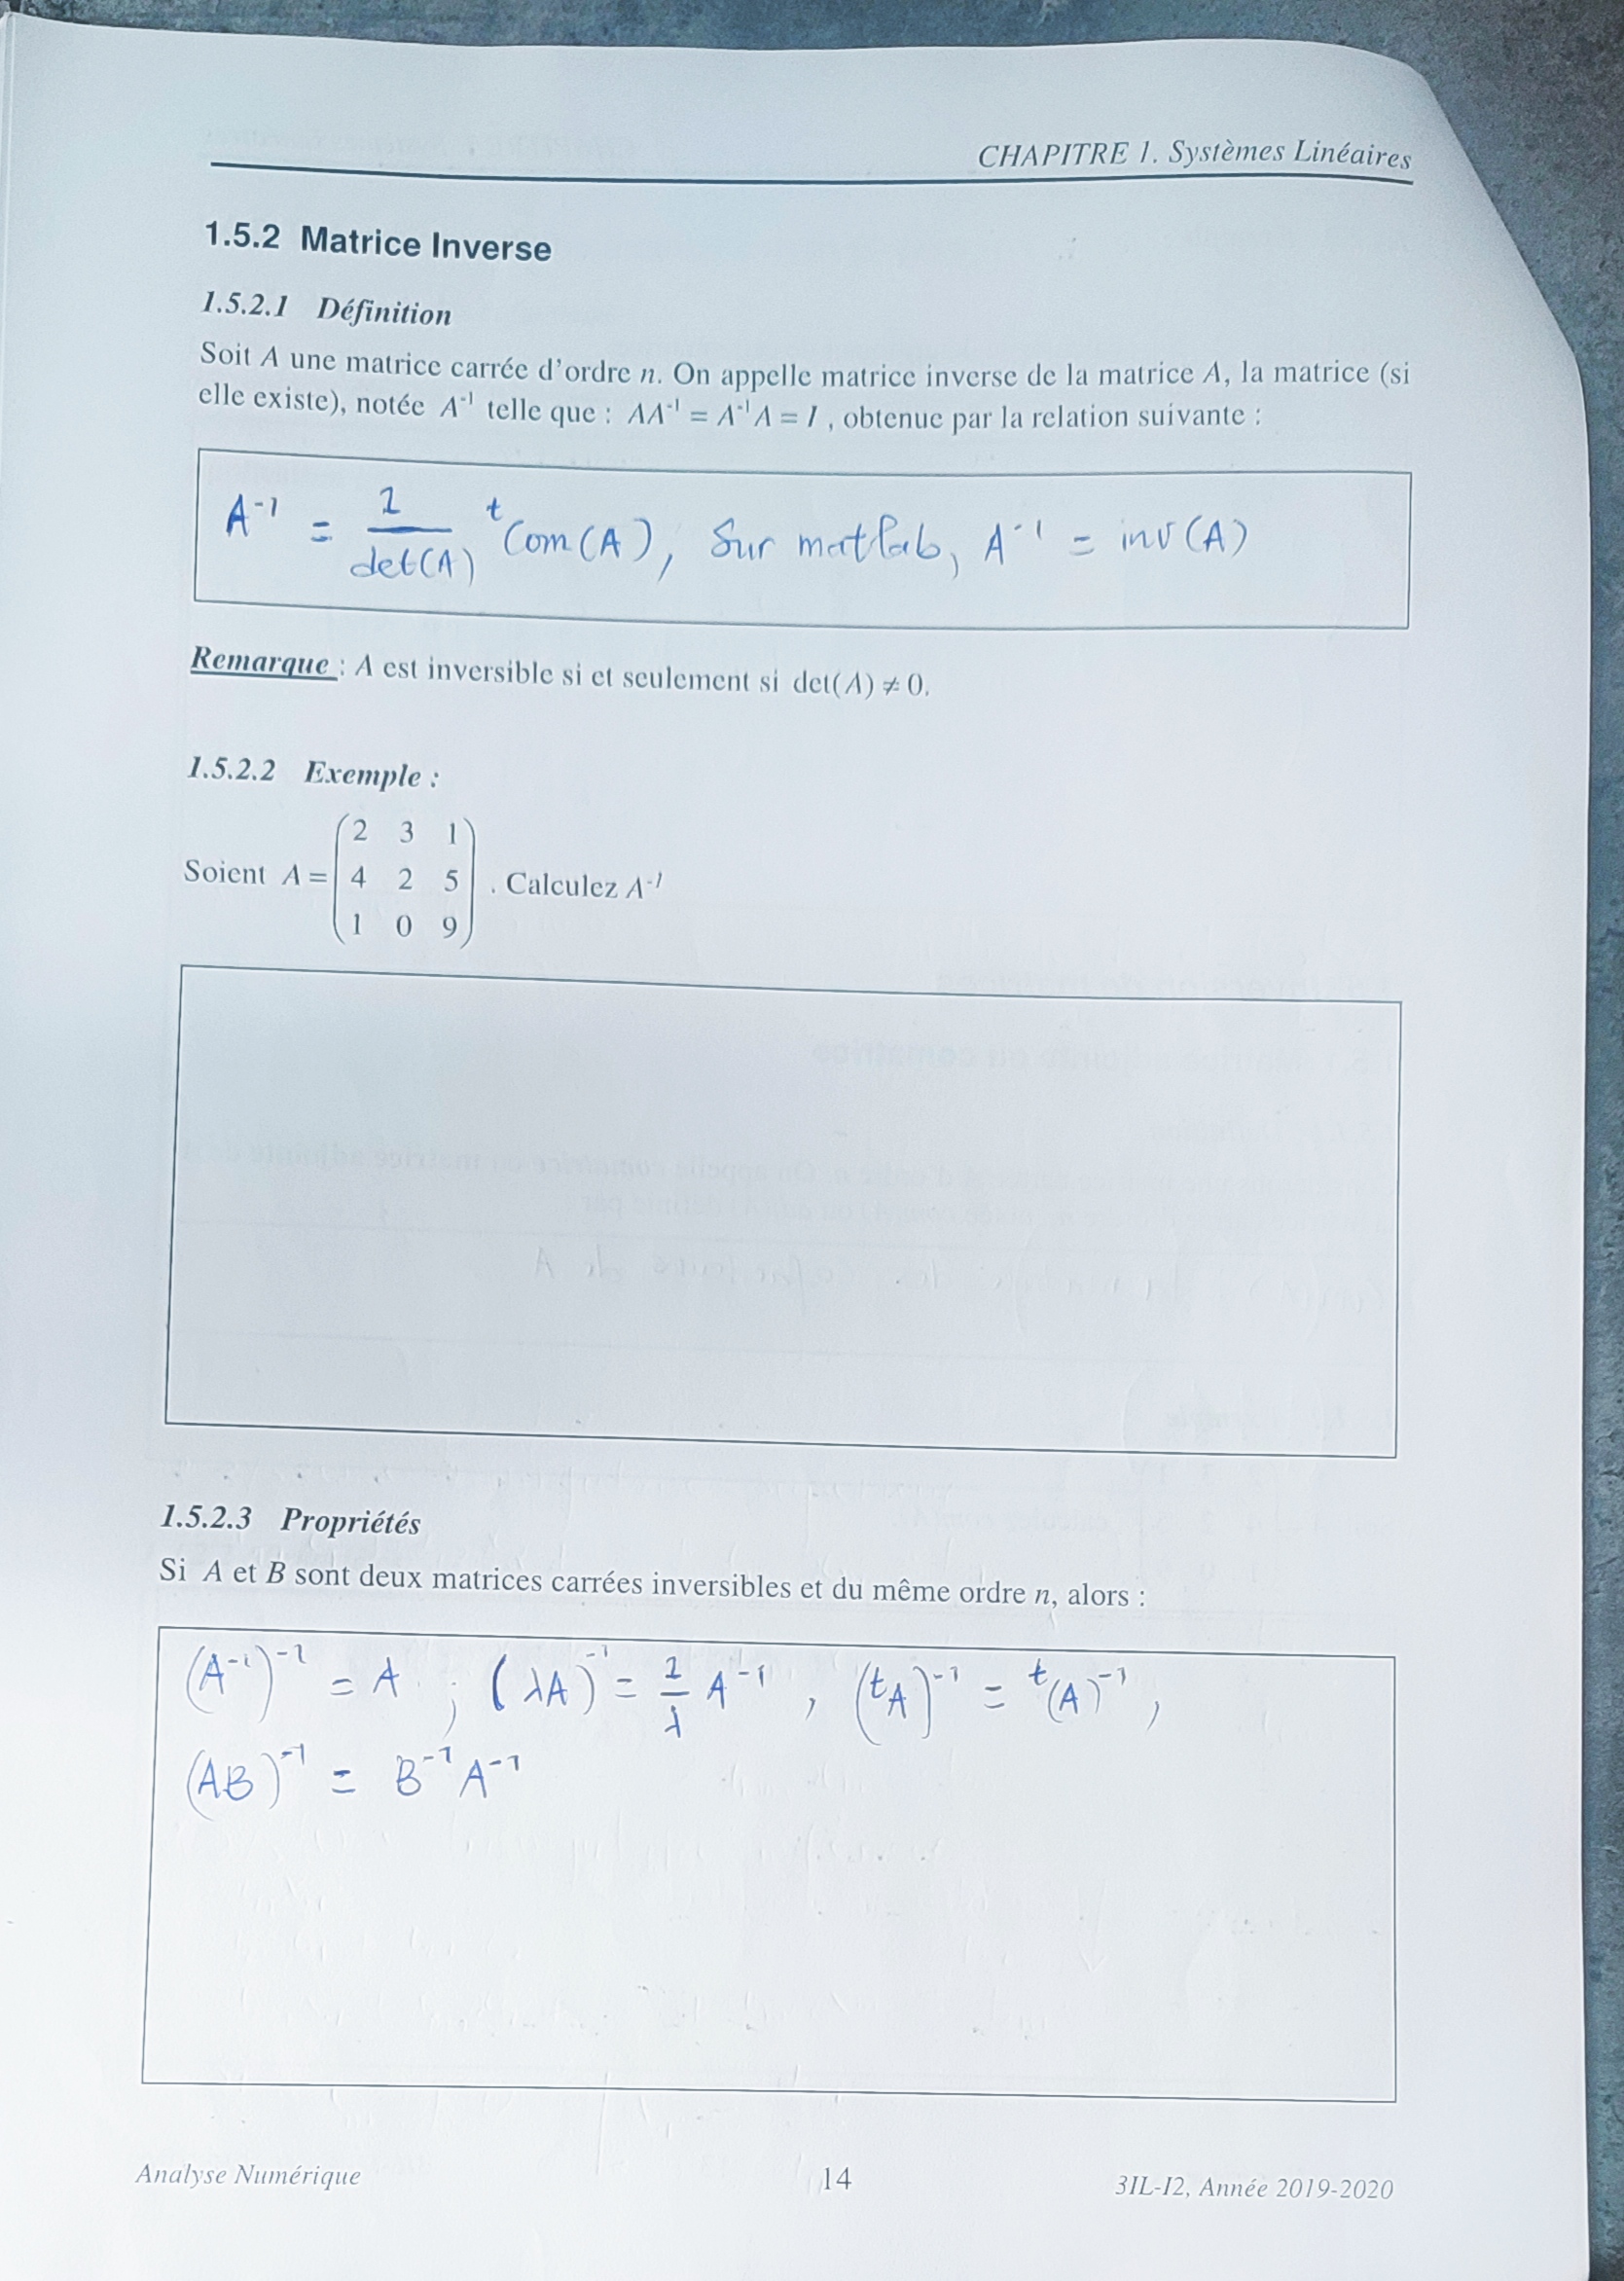 CHAPITRE 1. Systèmes Linéaires
1.5.2 Matrice Inverse
1.5.2.1 Définition
Soit A une matrice carrée d'ordre n. On appelle matrice inverse de la matrice A, la matrice (si
elle existe), notée A⁻¹ telle que : AA⁻¹ = A⁻¹A = I , obtenue par la relation suivante :
A⁻¹ = 1/det(A) ᵗCom(A), Sur matlab, A⁻¹ = inv(A)
Remarque : A est inversible si et seulement si det(A) ≠ 0.
1.5.2.2 Exemple :
2 3 1
Soient A = 4 2 5 . Calculez A⁻¹
1 0 9
1.5.2.3 Propriétés
Si A et B sont deux matrices carrées inversibles et du même ordre n, alors :
(A⁻¹)⁻¹ = A ; (λA)⁻¹ = 1/λ A⁻¹ , (ᵗA)⁻¹ = ᵗ(A)⁻¹ ,
(AB)⁻¹ = B⁻¹A⁻¹
Analyse Numérique 14 3IL-I2, Année 2019-2020